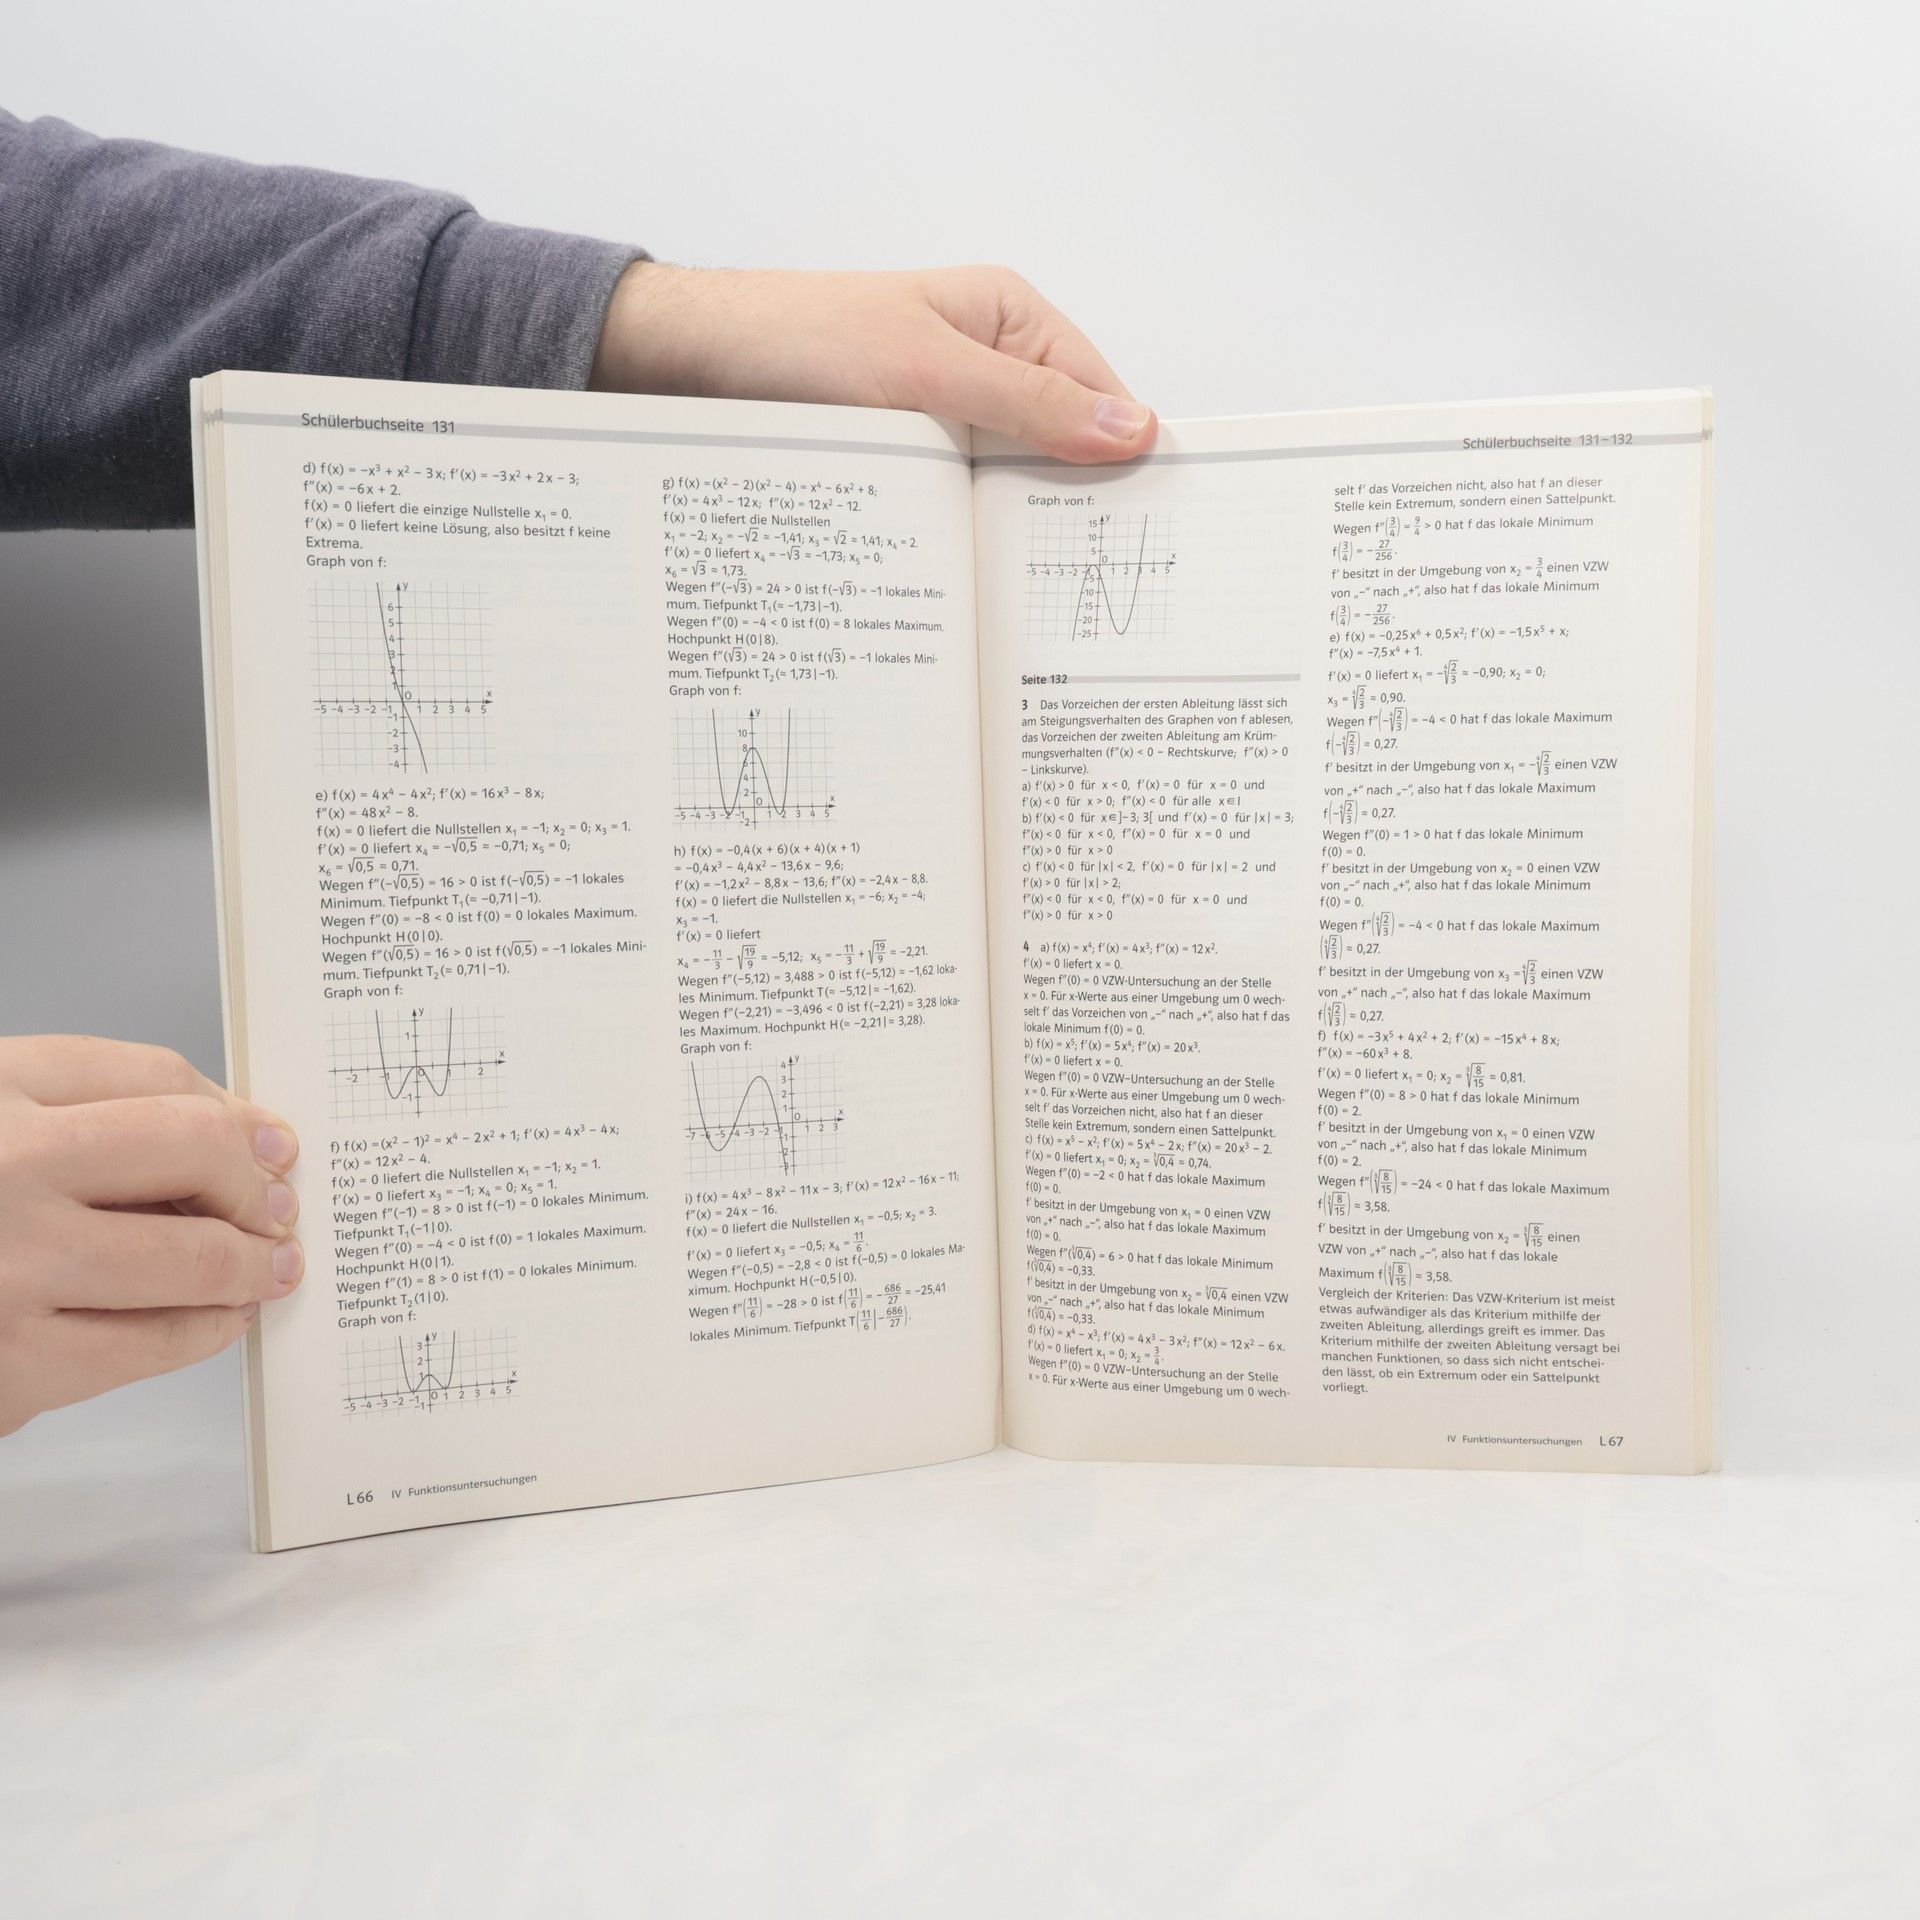 Schülerbuchseite 131
d) f(x) = −x³ + x² − 3x; f′(x) = −3x² + 2x − 3;
f″(x) = −6x + 2.
f(x) = 0 liefert die einzige Nullstelle x₁ = 0.
f′(x) = 0 liefert keine Lösung, also besitzt f keine
Extrema.
Graph von f:
e) f(x) = 4x⁴ − 4x²; f′(x) = 16x³ − 8x;
f″(x) = 48x² − 8.
f(x) = 0 liefert die Nullstellen x₁ = −1; x₂ = 0; x₃ = 1.
f′(x) = 0 liefert x₄ = −√0,5 ≈ −0,71; x₅ = 0;
x₆ = √0,5 ≈ 0,71.
Wegen f″(−√0,5) = 16 > 0 ist f(−√0,5) = −1 lokales
Minimum. Tiefpunkt T₁(≈ −0,71|−1).
Wegen f″(0) = −8 < 0 ist f(0) = 0 lokales Maximum.
Hochpunkt H(0|0).
Wegen f″(√0,5) = 16 > 0 ist f(√0,5) = −1 lokales Mini-
mum. Tiefpunkt T₂(≈ 0,71|−1).
Graph von f:
f) f(x) = (x² − 1)² = x⁴ − 2x² + 1; f′(x) = 4x³ − 4x;
f″(x) = 12x² − 4.
f(x) = 0 liefert die Nullstellen x₁ = −1; x₂ = 1.
f′(x) = 0 liefert x₃ = −1; x₄ = 0; x₅ = 1.
Wegen f″(−1) = 8 > 0 ist f(−1) = 0 lokales Minimum.
Tiefpunkt T₁(−1|0).
Wegen f″(0) = −4 < 0 ist f(0) = 1 lokales Maximum.
Hochpunkt H(0|1).
Wegen f″(1) = 8 > 0 ist f(1) = 0 lokales Minimum.
Tiefpunkt T₂(1|0).
Graph von f:
L 66 IV Funktionsuntersuchungen
g) f(x) = (x² − 2)(x² − 4) = x⁴ − 6x² + 8;
f′(x) = 4x³ − 12x; f″(x) = 12x² − 12.
f(x) = 0 liefert die Nullstellen
x₁ = −2; x₂ = −√2 ≈ −1,41; x₃ = √2 ≈ 1,41; x₄ = 2.
f′(x) = 0 liefert x₄ = −√3 ≈ −1,73; x₅ = 0;
x₆ = √3 ≈ 1,73.
Wegen f″(−√3) = 24 > 0 ist f(−√3) = −1 lokales Mini-
mum. Tiefpunkt T₁(≈ −1,73|−1).
Wegen f″(0) = −4 < 0 ist f(0) = 8 lokales Maximum.
Hochpunkt H(0|8).
Wegen f″(√3) = 24 > 0 ist f(√3) = −1 lokales Mini-
mum. Tiefpunkt T₂(≈ 1,73|−1).
Graph von f:
h) f(x) = −0,4(x + 6)(x + 4)(x + 1)
= −0,4x³ − 4,4x² − 13,6x − 9,6;
f′(x) = −1,2x² − 8,8x − 13,6; f″(x) = −2,4x − 8,8.
f(x) = 0 liefert die Nullstellen x₁ = −6; x₂ = −4;
x₃ = −1.
f′(x) = 0 liefert
x₄ = −11/3 − √(19/9) ≈ −5,12; x₅ = −11/3 + √(19/9) ≈ −2,21.
Wegen f″(−5,12) = 3,488 > 0 ist f(−5,12) ≈ −1,62 loka-
les Minimum. Tiefpunkt T(≈ −5,12|≈ −1,62).
Wegen f″(−2,21) = −3,496 < 0 ist f(−2,21) ≈ 3,28 loka-
les Maximum. Hochpunkt H(≈ −2,21|≈ 3,28).
Graph von f:
i) f(x) = 4x³ − 8x² − 11x − 3; f′(x) = 12x² − 16x − 11;
f″(x) = 24x − 16.
f(x) = 0 liefert die Nullstellen x₁ = −0,5; x₂ = 3.
f′(x) = 0 liefert x₃ = −0,5; x₄ = 11/6.
Wegen f″(−0,5) = −2,8 < 0 ist f(−0,5) = 0 lokales Ma-
ximum. Hochpunkt H(−0,5|0).
Wegen f″(11/6) = −28 > 0 ist f(11/6) = −686/27 ≈ −25,41
lokales Minimum. Tiefpunkt T(11/6|−686/27).
Schülerbuchseite 131–132
Graph von f:
Seite 132
3 Das Vorzeichen der ersten Ableitung lässt sich
am Steigungsverhalten des Graphen von f ablesen,
das Vorzeichen der zweiten Ableitung am Krüm-
mungsverhalten (f″(x) < 0 – Rechtskurve; f″(x) > 0
– Linkskurve).
a) f′(x) > 0 für x < 0, f′(x) = 0 für x = 0 und
f′(x) < 0 für x > 0; f″(x) < 0 für alle x∈I
b) f′(x) < 0 für x∈]−3; 3[ und f′(x) = 0 für |x| = 3;
f″(x) < 0 für x < 0, f″(x) = 0 für x = 0 und
f″(x) > 0 für x > 0
c) f′(x) < 0 für |x| < 2, f′(x) = 0 für |x| = 2 und
f′(x) > 0 für |x| > 2;
f″(x) < 0 für x < 0, f″(x) = 0 für x = 0 und
f″(x) > 0 für x > 0
4 a) f(x) = x⁴; f′(x) = 4x³; f″(x) = 12x².
f′(x) = 0 liefert x = 0.
Wegen f″(0) = 0 VZW-Untersuchung an der Stelle
x = 0. Für x-Werte aus einer Umgebung um 0 wech-
selt f′ das Vorzeichen von „–“ nach „+“, also hat f das
lokale Minimum f(0) = 0.
b) f(x) = x⁵; f′(x) = 5x⁴; f″(x) = 20x³.
f′(x) = 0 liefert x = 0.
Wegen f″(0) = 0 VZW–Untersuchung an der Stelle
x = 0. Für x-Werte aus einer Umgebung um 0 wech-
selt f′ das Vorzeichen nicht, also hat f an dieser
Stelle kein Extremum, sondern einen Sattelpunkt.
c) f(x) = x⁵ − x²; f′(x) = 5x⁴ − 2x; f″(x) = 20x³ − 2.
f′(x) = 0 liefert x₁ = 0; x₂ = ∛0,4 ≈ 0,74.
Wegen f″(0) = −2 < 0 hat f das lokale Maximum
f(0) = 0.
f′ besitzt in der Umgebung von x₁ = 0 einen VZW
von „+“ nach „–“, also hat f das lokale Maximum
f(0) = 0.
Wegen f″(∛0,4) = 6 > 0 hat f das lokale Minimum
f(∛0,4) ≈ −0,33.
f′ besitzt in der Umgebung von x₂ = ∛0,4 einen VZW
von „–“ nach „+“, also hat f das lokale Minimum
f(∛0,4) ≈ −0,33.
d) f(x) = x⁴ − x³; f′(x) = 4x³ − 3x²; f″(x) = 12x² − 6x.
f′(x) = 0 liefert x₁ = 0; x₂ = 3/4.
Wegen f″(0) = 0 VZW–Untersuchung an der Stelle
x = 0. Für x-Werte aus einer Umgebung um 0 wech-
selt f′ das Vorzeichen nicht, also hat f an dieser
Stelle kein Extremum, sondern einen Sattelpunkt.
Wegen f″(3/4) = 9/4 > 0 hat f das lokale Minimum
f(3/4) = −27/256.
f′ besitzt in der Umgebung von x₂ = 3/4 einen VZW
von „–“ nach „+“, also hat f das lokale Minimum
f(3/4) = −27/256.
e) f(x) = −0,25x⁶ + 0,5x²; f′(x) = −1,5x⁵ + x;
f″(x) = −7,5x⁴ + 1.
f′(x) = 0 liefert x₁ = −∜(2/3) ≈ −0,90; x₂ = 0;
x₃ = ∜(2/3) ≈ 0,90.
Wegen f″(−∜(2/3)) = −4 < 0 hat f das lokale Maximum
f(−∜(2/3)) ≈ 0,27.
f′ besitzt in der Umgebung von x₁ = −∜(2/3) einen VZW
von „+“ nach „–“, also hat f das lokale Maximum
f(−∜(2/3)) ≈ 0,27.
Wegen f″(0) = 1 > 0 hat f das lokale Minimum
f(0) = 0.
f′ besitzt in der Umgebung von x₂ = 0 einen VZW
von „–“ nach „+“, also hat f das lokale Minimum
f(0) = 0.
Wegen f″(∜(2/3)) = −4 < 0 hat f das lokale Maximum
(∜(2/3)) ≈ 0,27.
f′ besitzt in der Umgebung von x₃ = ∜(2/3) einen VZW
von „+“ nach „–“, also hat f das lokale Maximum
f(∜(2/3)) ≈ 0,27.
f) f(x) = −3x⁵ + 4x² + 2; f′(x) = −15x⁴ + 8x;
f″(x) = −60x³ + 8.
f′(x) = 0 liefert x₁ = 0; x₂ = ∛(8/15) ≈ 0,81.
Wegen f″(0) = 8 > 0 hat f das lokale Minimum
f(0) = 2.
f′ besitzt in der Umgebung von x₁ = 0 einen VZW
von „–“ nach „+“, also hat f das lokale Minimum
f(0) = 2.
Wegen f″(∛(8/15)) = −24 < 0 hat f das lokale Maximum
f(∛(8/15)) ≈ 3,58.
f′ besitzt in der Umgebung von x₂ = ∛(8/15) einen
VZW von „+“ nach „–“, also hat f das lokale
Maximum f(∛(8/15)) ≈ 3,58.
Vergleich der Kriterien: Das VZW-Kriterium ist meist
etwas aufwändiger als das Kriterium mithilfe der
zweiten Ableitung, allerdings greift es immer. Das
Kriterium mithilfe der zweiten Ableitung versagt bei
manchen Funktionen, so dass sich nicht entschei-
den lässt, ob ein Extremum oder ein Sattelpunkt
vorliegt.
IV Funktionsuntersuchungen L 67